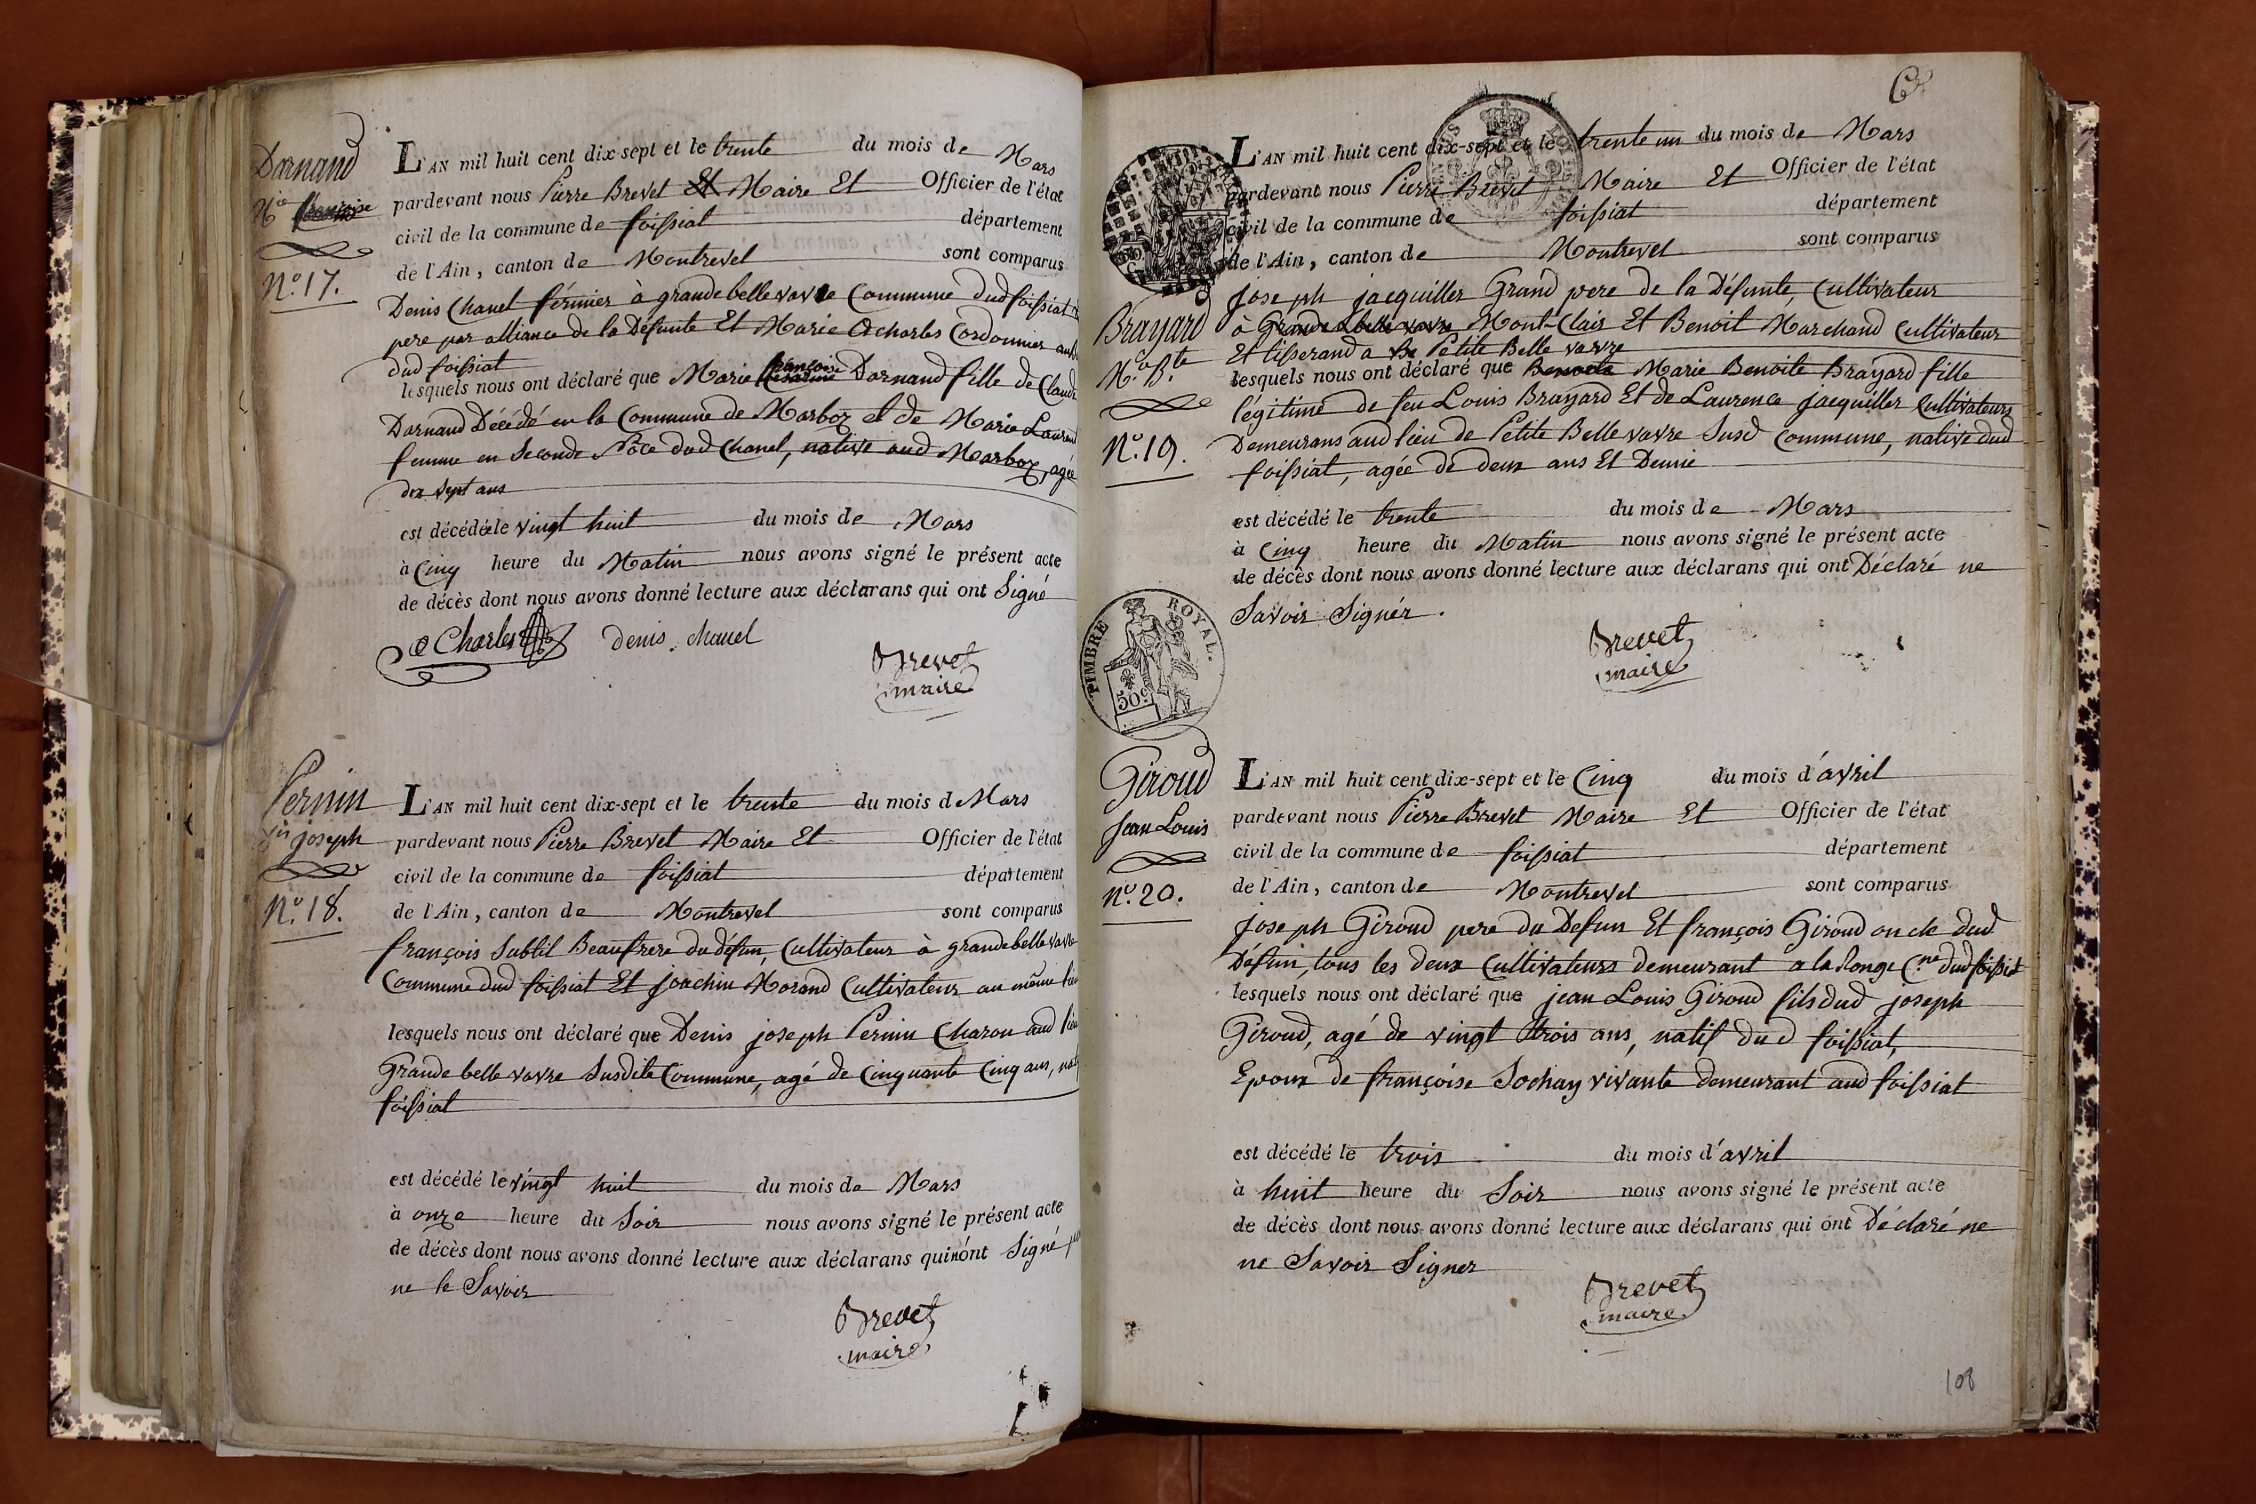 Darnand
Mie françoise
No. 17.
L'AN mil huit cent dix-sept et le trente du mois de Mars
pardevant nous Pierre Brevet Et Maire Et Officier de l'état
civil de la commune de foissiat département
de l'Ain, canton de Montrevel sont comparus
Denis Chanel férmier à grande belle vavre Commune dud foissiat
pere par alliance de la Défunte Et Marie Acharles Cordonnier
dud foissiat
lesquels nous ont déclaré que Marie françoise Darnand fille de Claude
Darnand Décédé en la Commune de Marboz et de Marie Laurent
femme en Seconde Nôce dud Chanel, native aud Marboz, agée
dix sept ans
est décédée le vingt huit du mois de Mars
à Cinq heure du Matin nous avons signé le présent acte
de décès dont nous avons donné lecture aux déclarans qui ont Signé
aCharles denis chanel
Brevet
maire
Pernin
joseph
No. 18.
L'AN mil huit cent dix-sept et le trente du mois de Mars
pardevant nous Pierre Brevet Maire Et Officier de l'état
civil de la commune de foissiat département
de l'Ain, canton de Montrevel sont comparus
françois Subtil Beaufrere du défun, Cultivateur à grande belle vavre
Commune dud foissiat Et Joachin Morand Cultivateur au même lieu
lesquels nous ont déclaré que Denis joseph Pernin Charon aud lieu
Grande belle vavre Susdite Commune, agé de Cinquante Cinq ans,
foissiat
est décédé le vingt huit du mois de Mars
à onze heure du Soir nous avons signé le présent acte
de décès dont nous avons donné lecture aux déclarans qui n'ont Signé
ne le Savoir
Brevet
maire
TIMBRE ROYAL.
50c
Brayard
Mie Bte
No. 19.
L'AN mil huit cent dix-sept et le trente un du mois de Mars
pardevant nous Pierre Brevet Maire Et Officier de l'état
civil de la commune de foissiat département
de l'Ain, canton de Montrevel sont comparus
joseph jacquiller Grand pere de la Défunte, Cultivateur
à Grande belle vavre Mont-Clair Et Benoit Marchand Cultivateur
Et tisserand a Petite Belle vavre
lesquels nous ont déclaré que Benoite Marie Benoite Brayard fille
légitime de feu Louis Brayard Et de Laurence jacquiller Cultivateurs
Demeurans aud lieu de Petite Belle vavre Susd Commune, native dud
foissiat, agée de deux ans Et Demie
est décédé le trente du mois de Mars
à Cinq heure du Matin nous avons signé le présent acte
de décès dont nous avons donné lecture aux déclarans qui ont Déclaré ne
Savoir Signér.
Brevet
maire
Giroud
Jean Louis
No. 20.
L'AN mil huit cent dix-sept et le Cinq du mois d'avril
pardevant nous Pierre Brevet Maire Et Officier de l'état
civil de la commune de foissiat département
de l'Ain, canton de Montrevel sont comparus
joseph Giroud pere du Defun Et françois Giroud oncle dud
Défun, tous les deux Cultivateurs demeurant a la Longe Cne dud foissiat
lesquels nous ont déclaré que jean Louis Giroud fils dud joseph
Giroud, agé de vingt trois ans, natif dud foissiat,
Epoux de françoise Sochay vivante demeurant aud foissiat
est décédé le trois du mois d'avril
à huit heure du Soir nous avons signé le présent acte
de décès dont nous avons donné lecture aux déclarans qui ont Déclaré ne
ne Savoir Signer
Brevet
maire
108